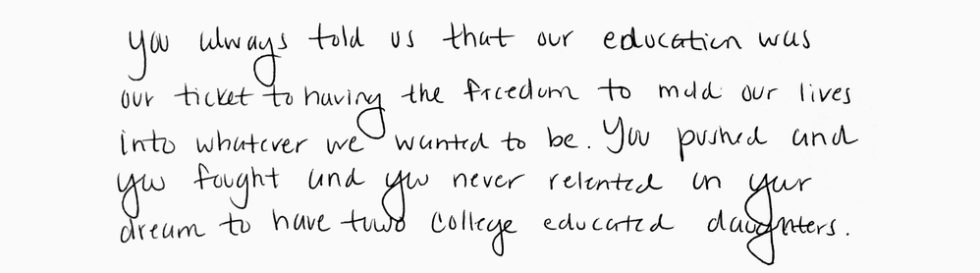 you always told us that our education was
our ticket to having the freedom to mold our lives
into whatever we wanted to be. You pushed and
you fought and you never relented on your
dream to have two college educated daughters.